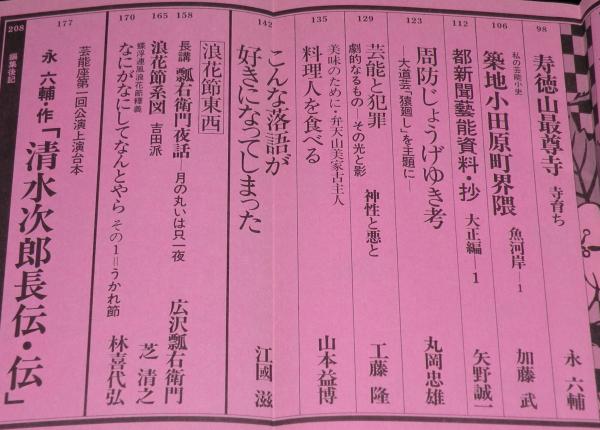 98
寿徳山最尊寺 寺育ち 永 六輔
106
私の芸能小史
築地小田原町界隈 魚河岸―1 加藤 武
112
都新聞藝能資料・抄 大正編―1 矢野誠一
123
周防じょうげゆき考
―大道芸「猿廻し」を主題に― 丸岡忠雄
129
芸能と犯罪 神性と悪と 工藤 隆
劇的なるもの その光と影
135
美味のために・弁天山美家古主人
料理人を食べる 山本益博
142
こんな落語が
好きになってしまった 江國 滋
浪花節東西
158
長講 瓢右衛門夜話 月の丸いは只一夜 広沢瓢右衛門
165
浪花節系図 吉田派 芝 清之
170
蝶浮連風浪花節釋義
なにがなにしてなんとやら その1=うかれ節 林喜代弘
177
芸能座第一回公演上演台本
永 六輔・作「清水次郎長伝・伝」
208
編集後記